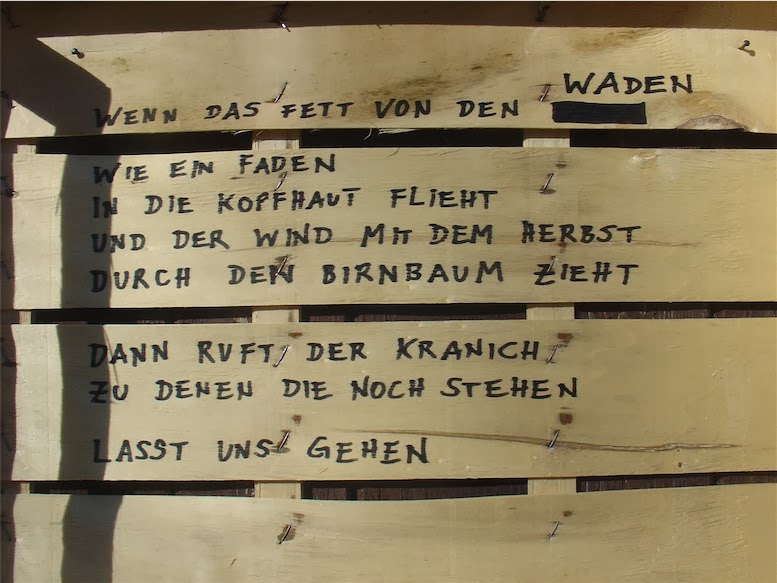 WENN DAS FETT VON DEN WADEN
WIE EIN FADEN
IN DIE KOPFHAUT FLIEHT
UND DER WIND MIT DEM HERBST
DURCH DEN BIRNBAUM ZIEHT
DANN RUFT DER KRANICH
ZU DENEN DIE NOCH STEHEN
LASST UNS GEHEN